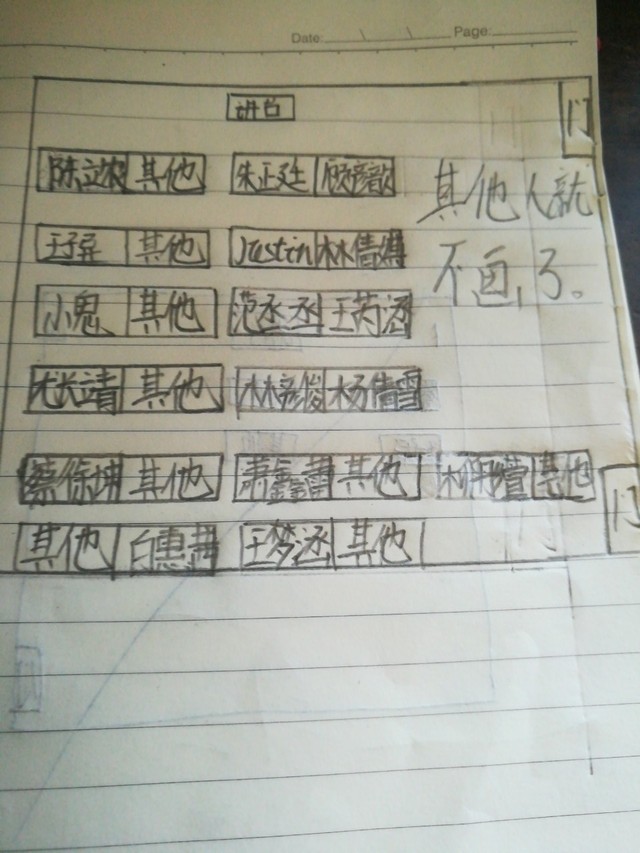 Date: Page:
讲台 门
陈立农 其他 朱正廷 其他人就
王子异 其他 Justin 林倩 不画了。
小鬼 其他 范丞丞 王芮涵
尤长靖 其他 林彦俊 杨倩雪
蔡徐坤 其他 萧鑫 其他 其他 门
其他 白惠茜 王梦涵 其他